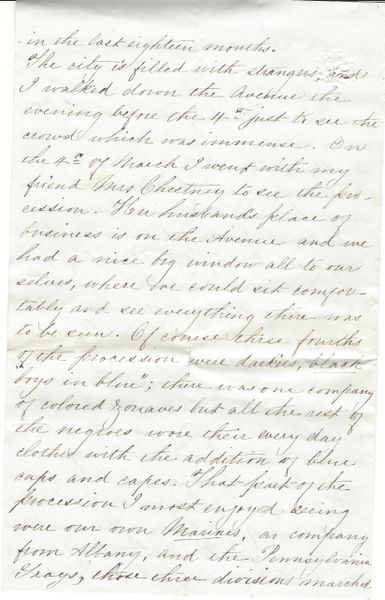 in the last eighteen months.
The city is filled with strangers, and
I walked down the Avenue the
evening before the 4th just to see the
crowd which was immense. On
the 4th of March I went with my
friend Mrs Chestney to see the pro-
cession. Her husband's place of
business is on the Avenue and we
had a nice big window all to our
selves, where we could sit comfor-
tably and see everything there was
to be seen. Of course three fourths
of the procession were darkies, black
"boys in blue"; there was one company
of colored zouaves but all the rest of
the negroes wore their every day
clothes with the addition of blue
caps and capes. That part of the
procession I most enjoyed seeing
were our own Marines, a company
from Albany, and the Pennsylvania
Grays, those three divisions marched